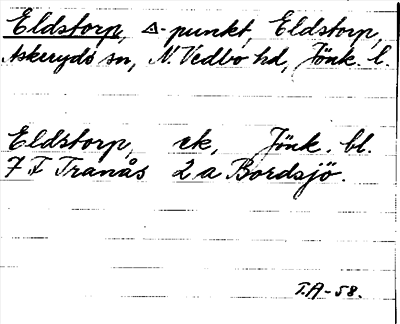 Eldstorp, △-punkt, Eldstorp,
Askeryds sn, N. Vedbo hd, Jönk. l.
Eldstorp, ek, Jönk. bl.
7 F Tranås 2 a Bordsjö.
T.A-58.